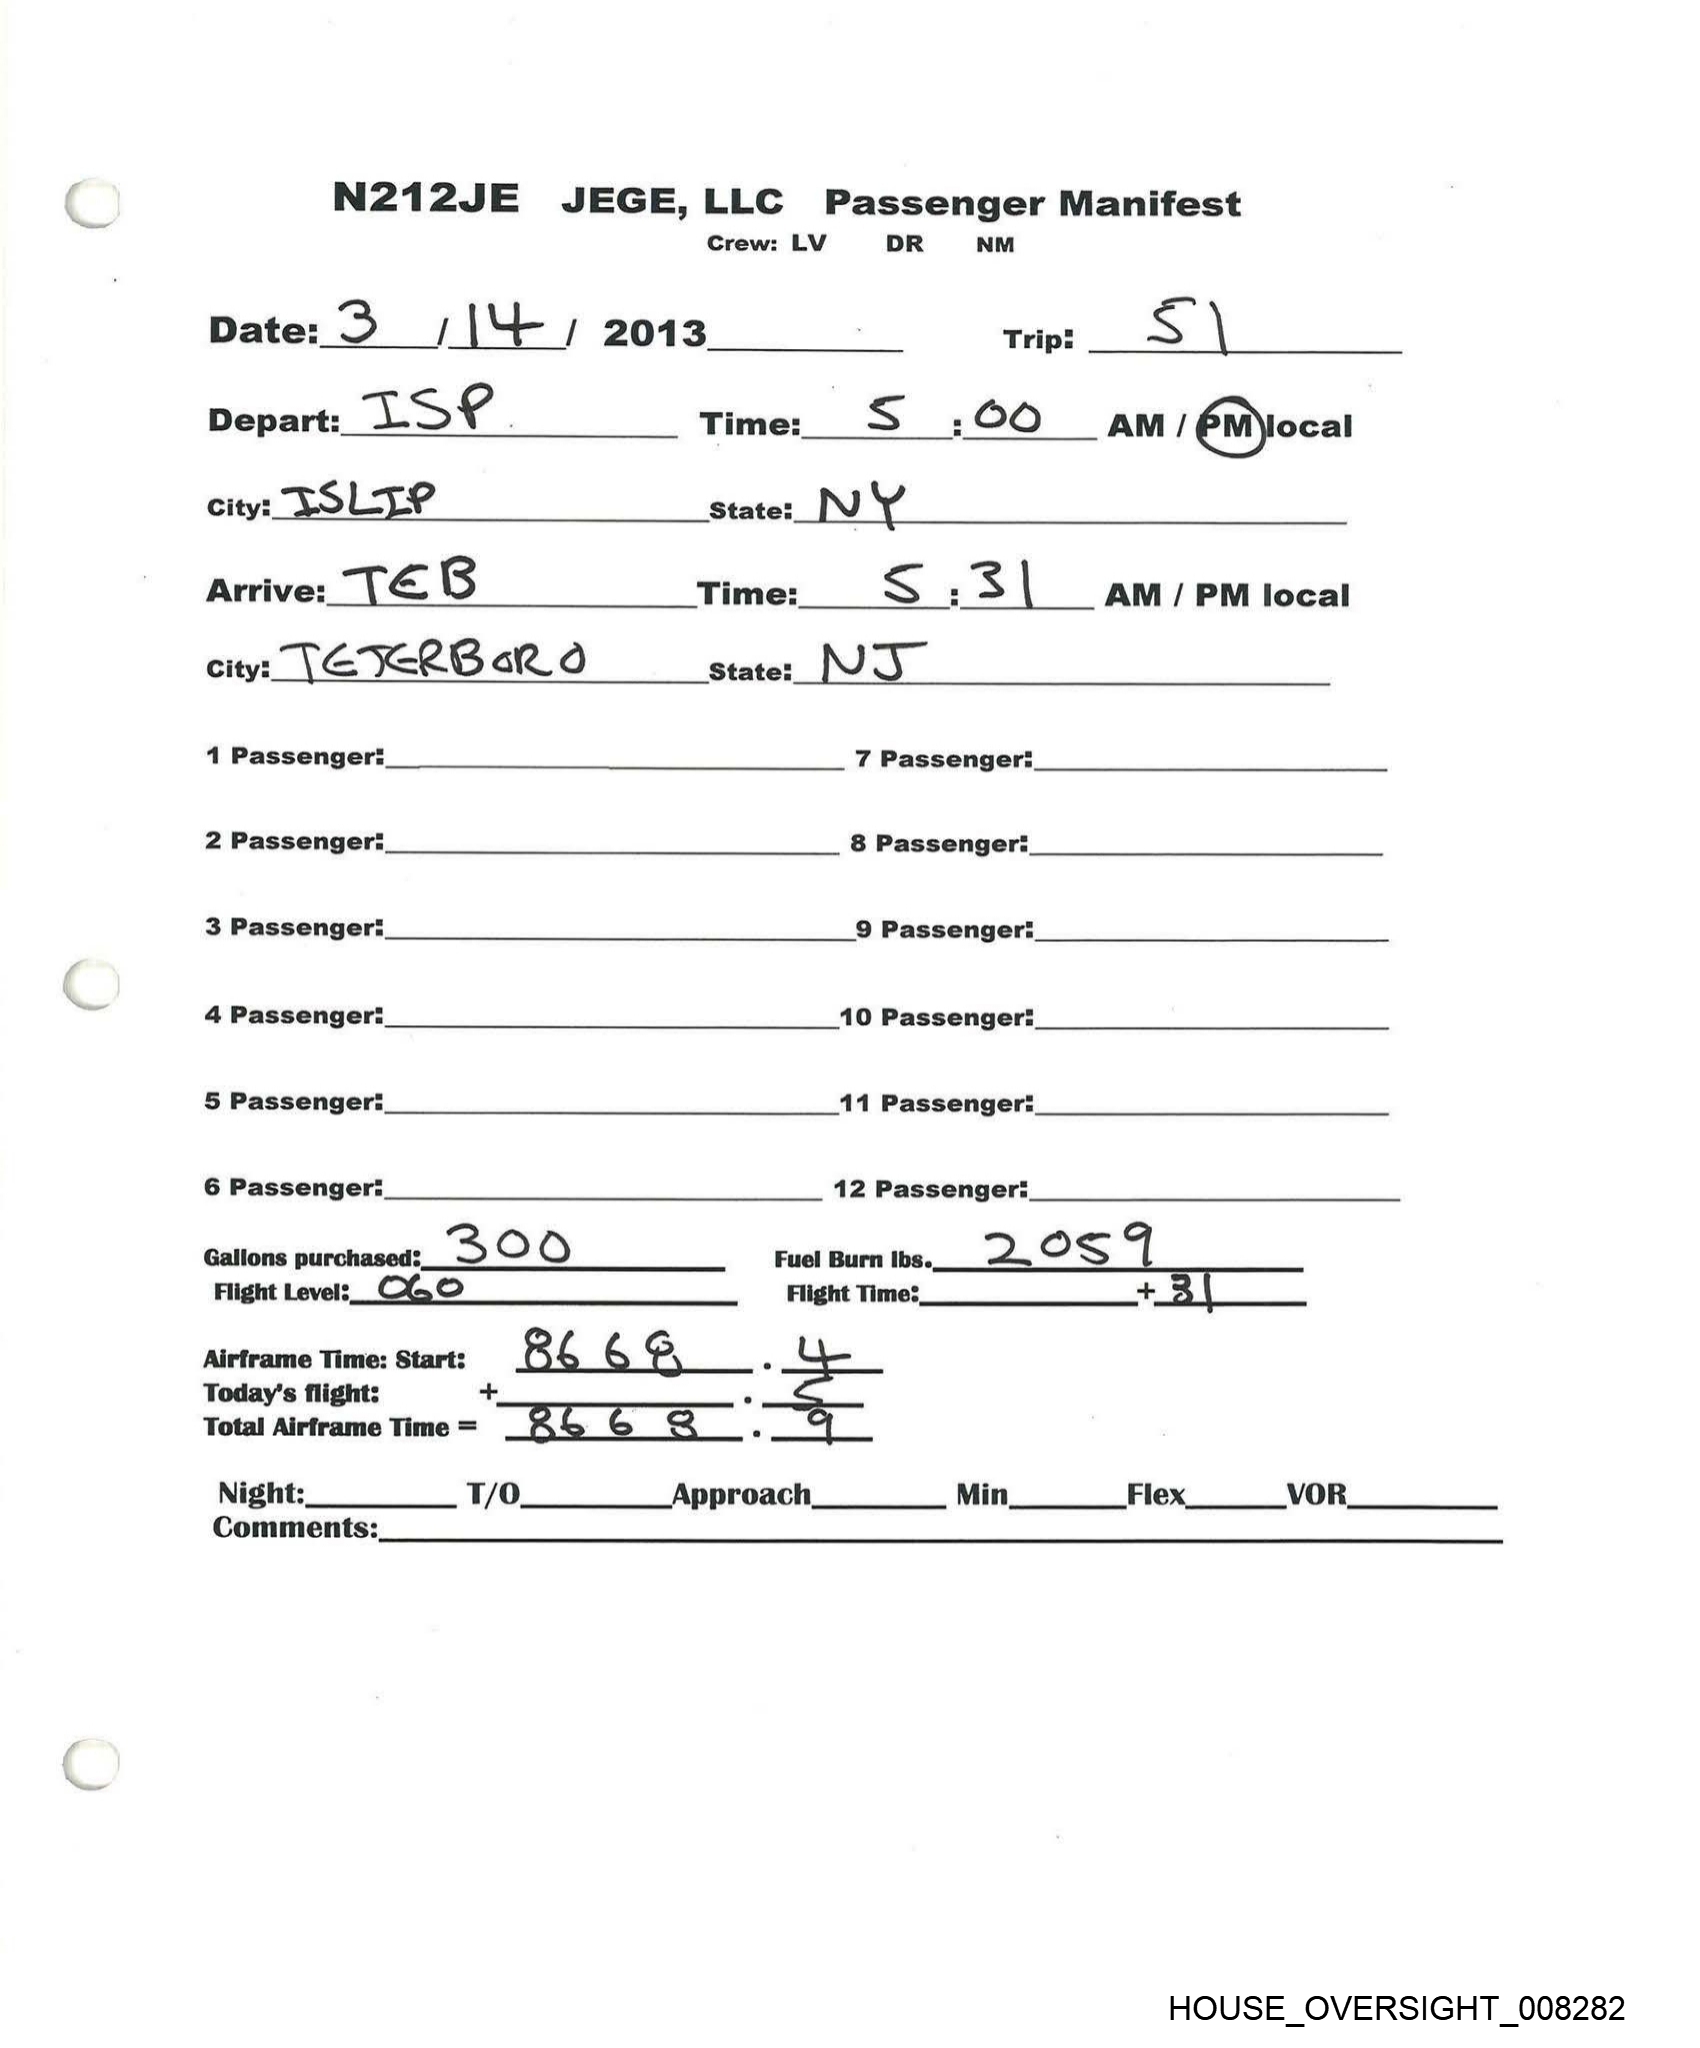 N212JE JEGE, LLC Passenger Manifest
Crew: LV DR NM
Date: 3 / 14 / 2013 Trip: 51
Depart: ISP Time: 5 : 00 AM / PM local
City: ISLIP State: NY
Arrive: TEB Time: 5 : 31 AM / PM local
City: TETERBORO State: NJ
1 Passenger: 7 Passenger:
2 Passenger: 8 Passenger:
3 Passenger: 9 Passenger:
4 Passenger: 10 Passenger:
5 Passenger: 11 Passenger:
6 Passenger: 12 Passenger:
Gallons purchased: 300 Fuel Burn lbs. 2059
Flight Level: 060 Flight Time: + 31
Airframe Time: Start: 8668 . 4
Today's flight: + . 5
Total Airframe Time = 8668 . 9
Night: T/O Approach Min Flex VOR
Comments:
HOUSE_OVERSIGHT_008282